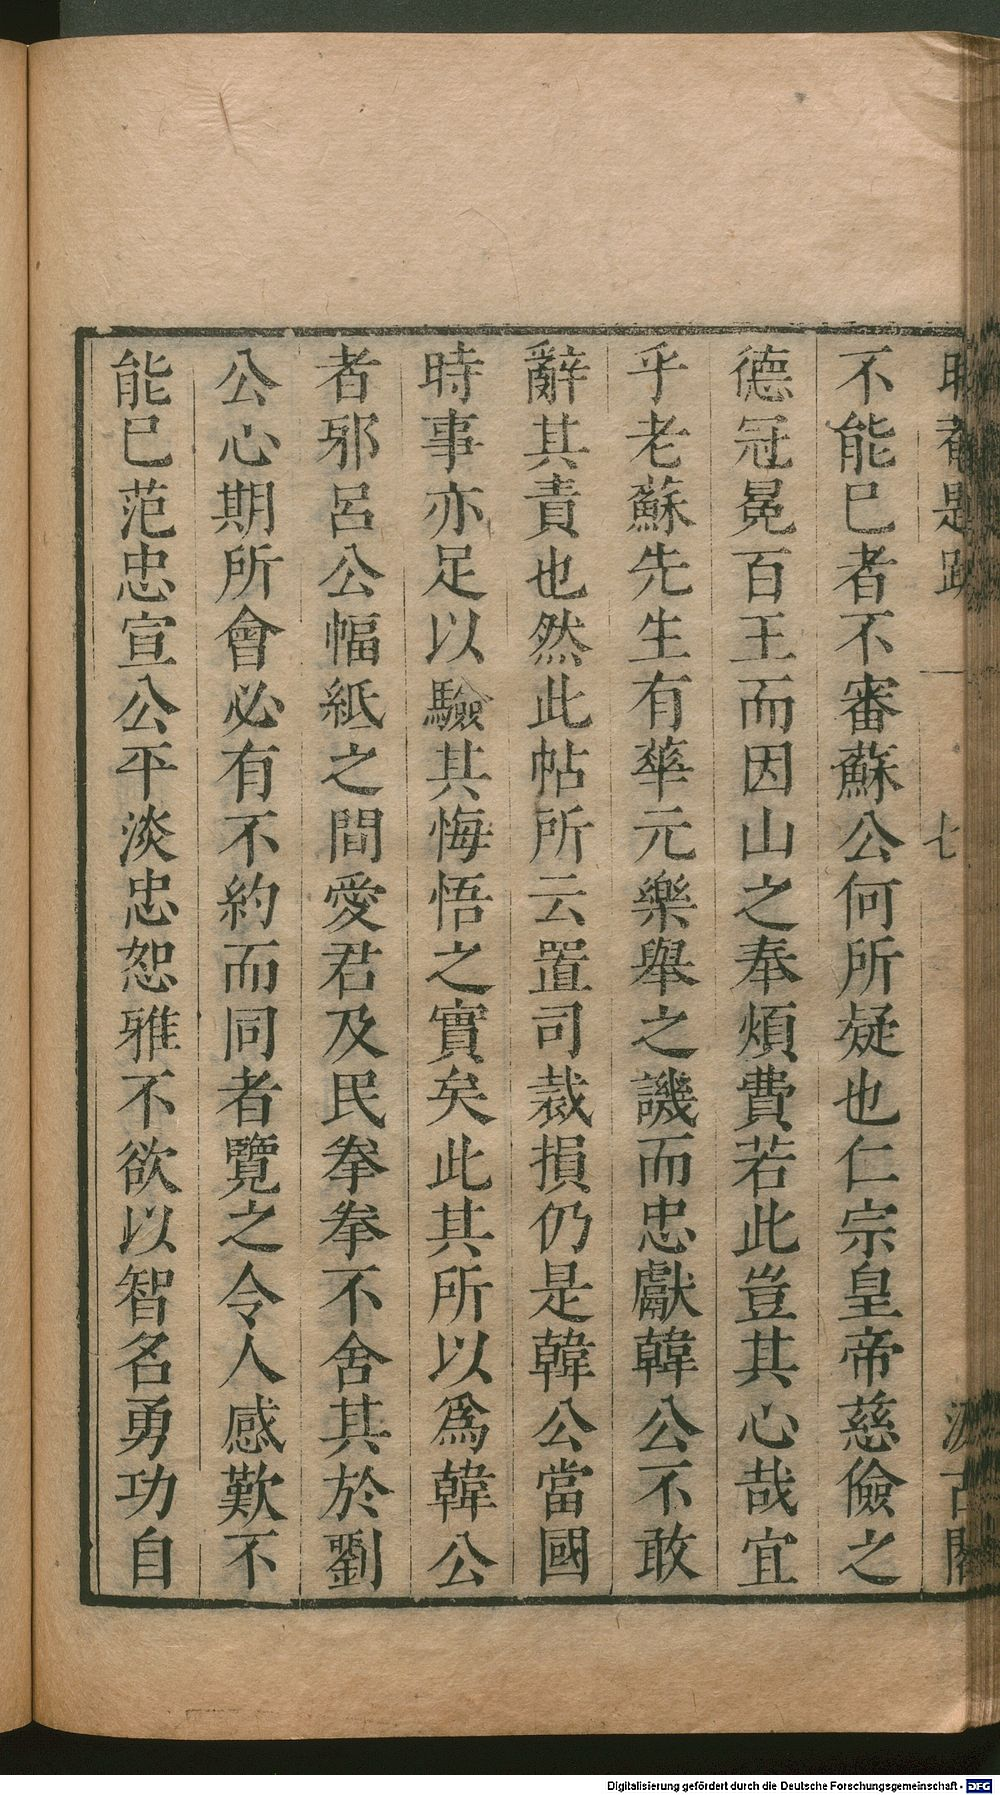 不能已者不審蘇公何所疑也仁宗皇帝慈儉之
德冠冕百王而因山之奉煩費若此豈其心哉宜
乎老蘇先生有華元樂舉之譏而忠獻韓公不敢
辭其責也然此帖所云置司裁損仍是韓公當國
時事亦足以驗其悔悟之實矣此其所以爲韓公
者邪呂公幅紙之間愛君及民拳拳不舍其於劉
公心期所會必有不約而同者覽之令人感歎不
能已范忠宣公平淡忠恕雅不欲以智名勇功自
Digitalisierung gefördert durch die Deutsche Forschungsgemeinschaft - DFG